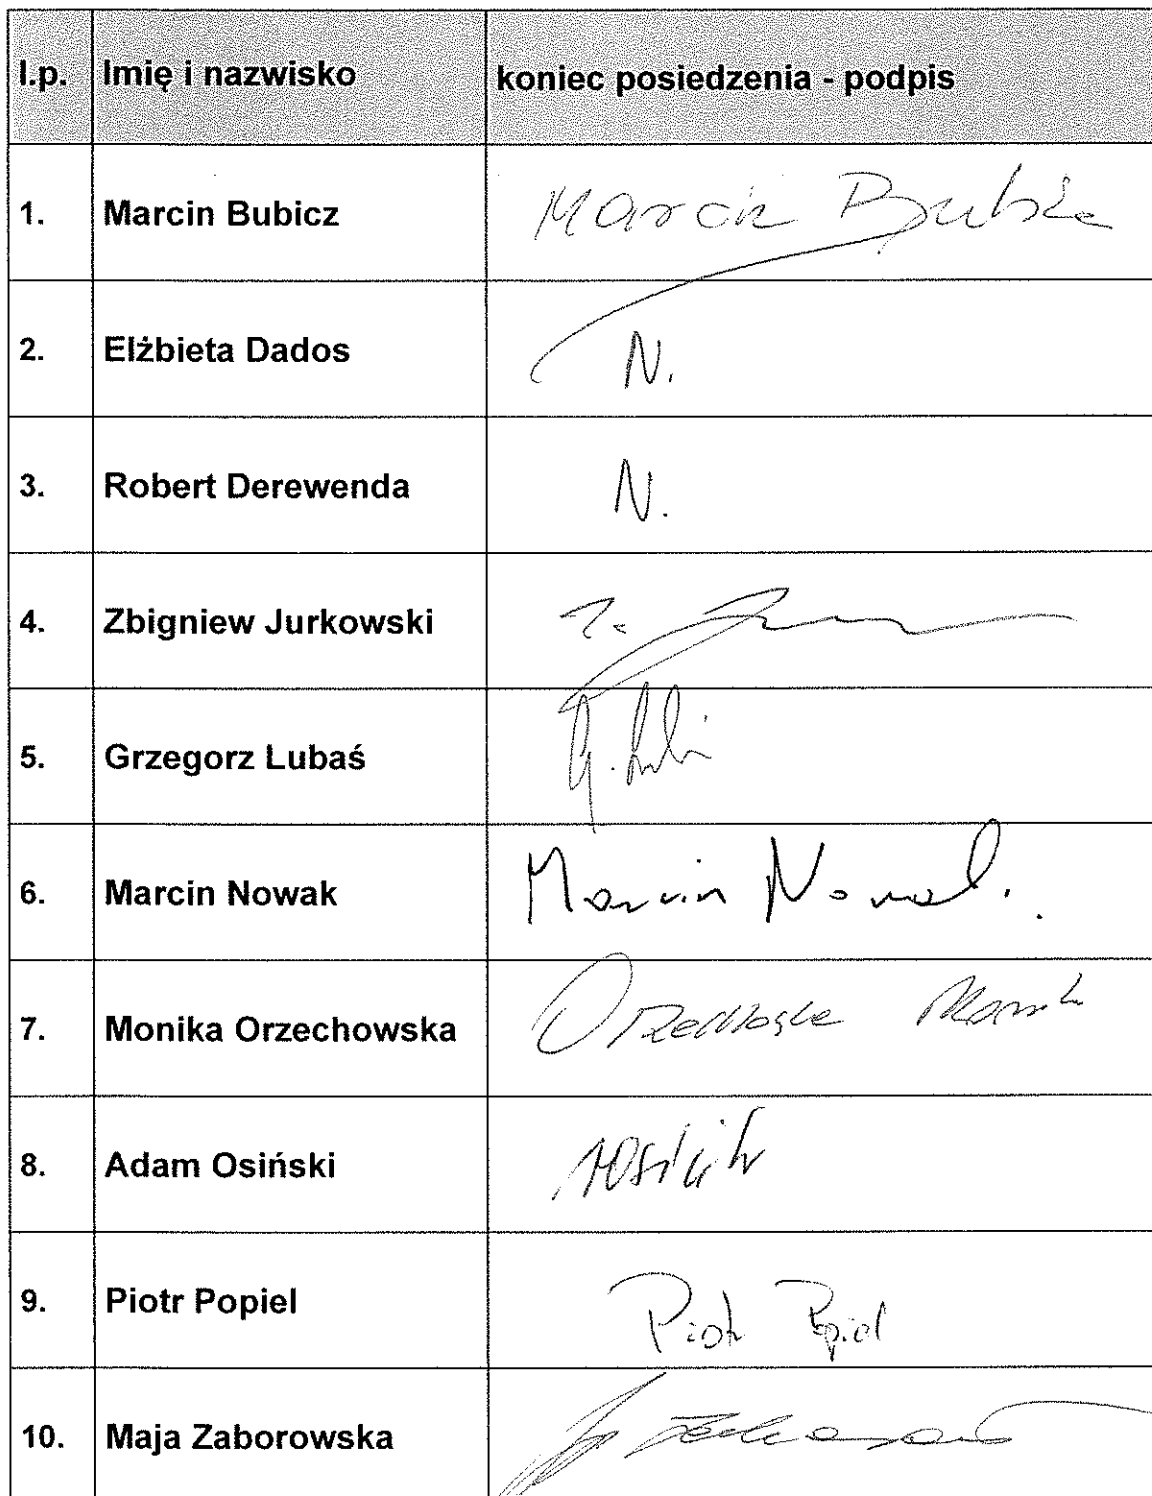 l.p. Imię i nazwisko koniec posiedzenia - podpis
1. Marcin Bubicz Marcin
2. Elżbieta Dados N.
3. Robert Derewenda N.
4. Zbigniew Jurkowski
5. Grzegorz Lubaś
6. Marcin Nowak Marcin Nowak
7. Monika Orzechowska
8. Adam Osiński
9. Piotr Popiel Piotr Popiel
10. Maja Zaborowska